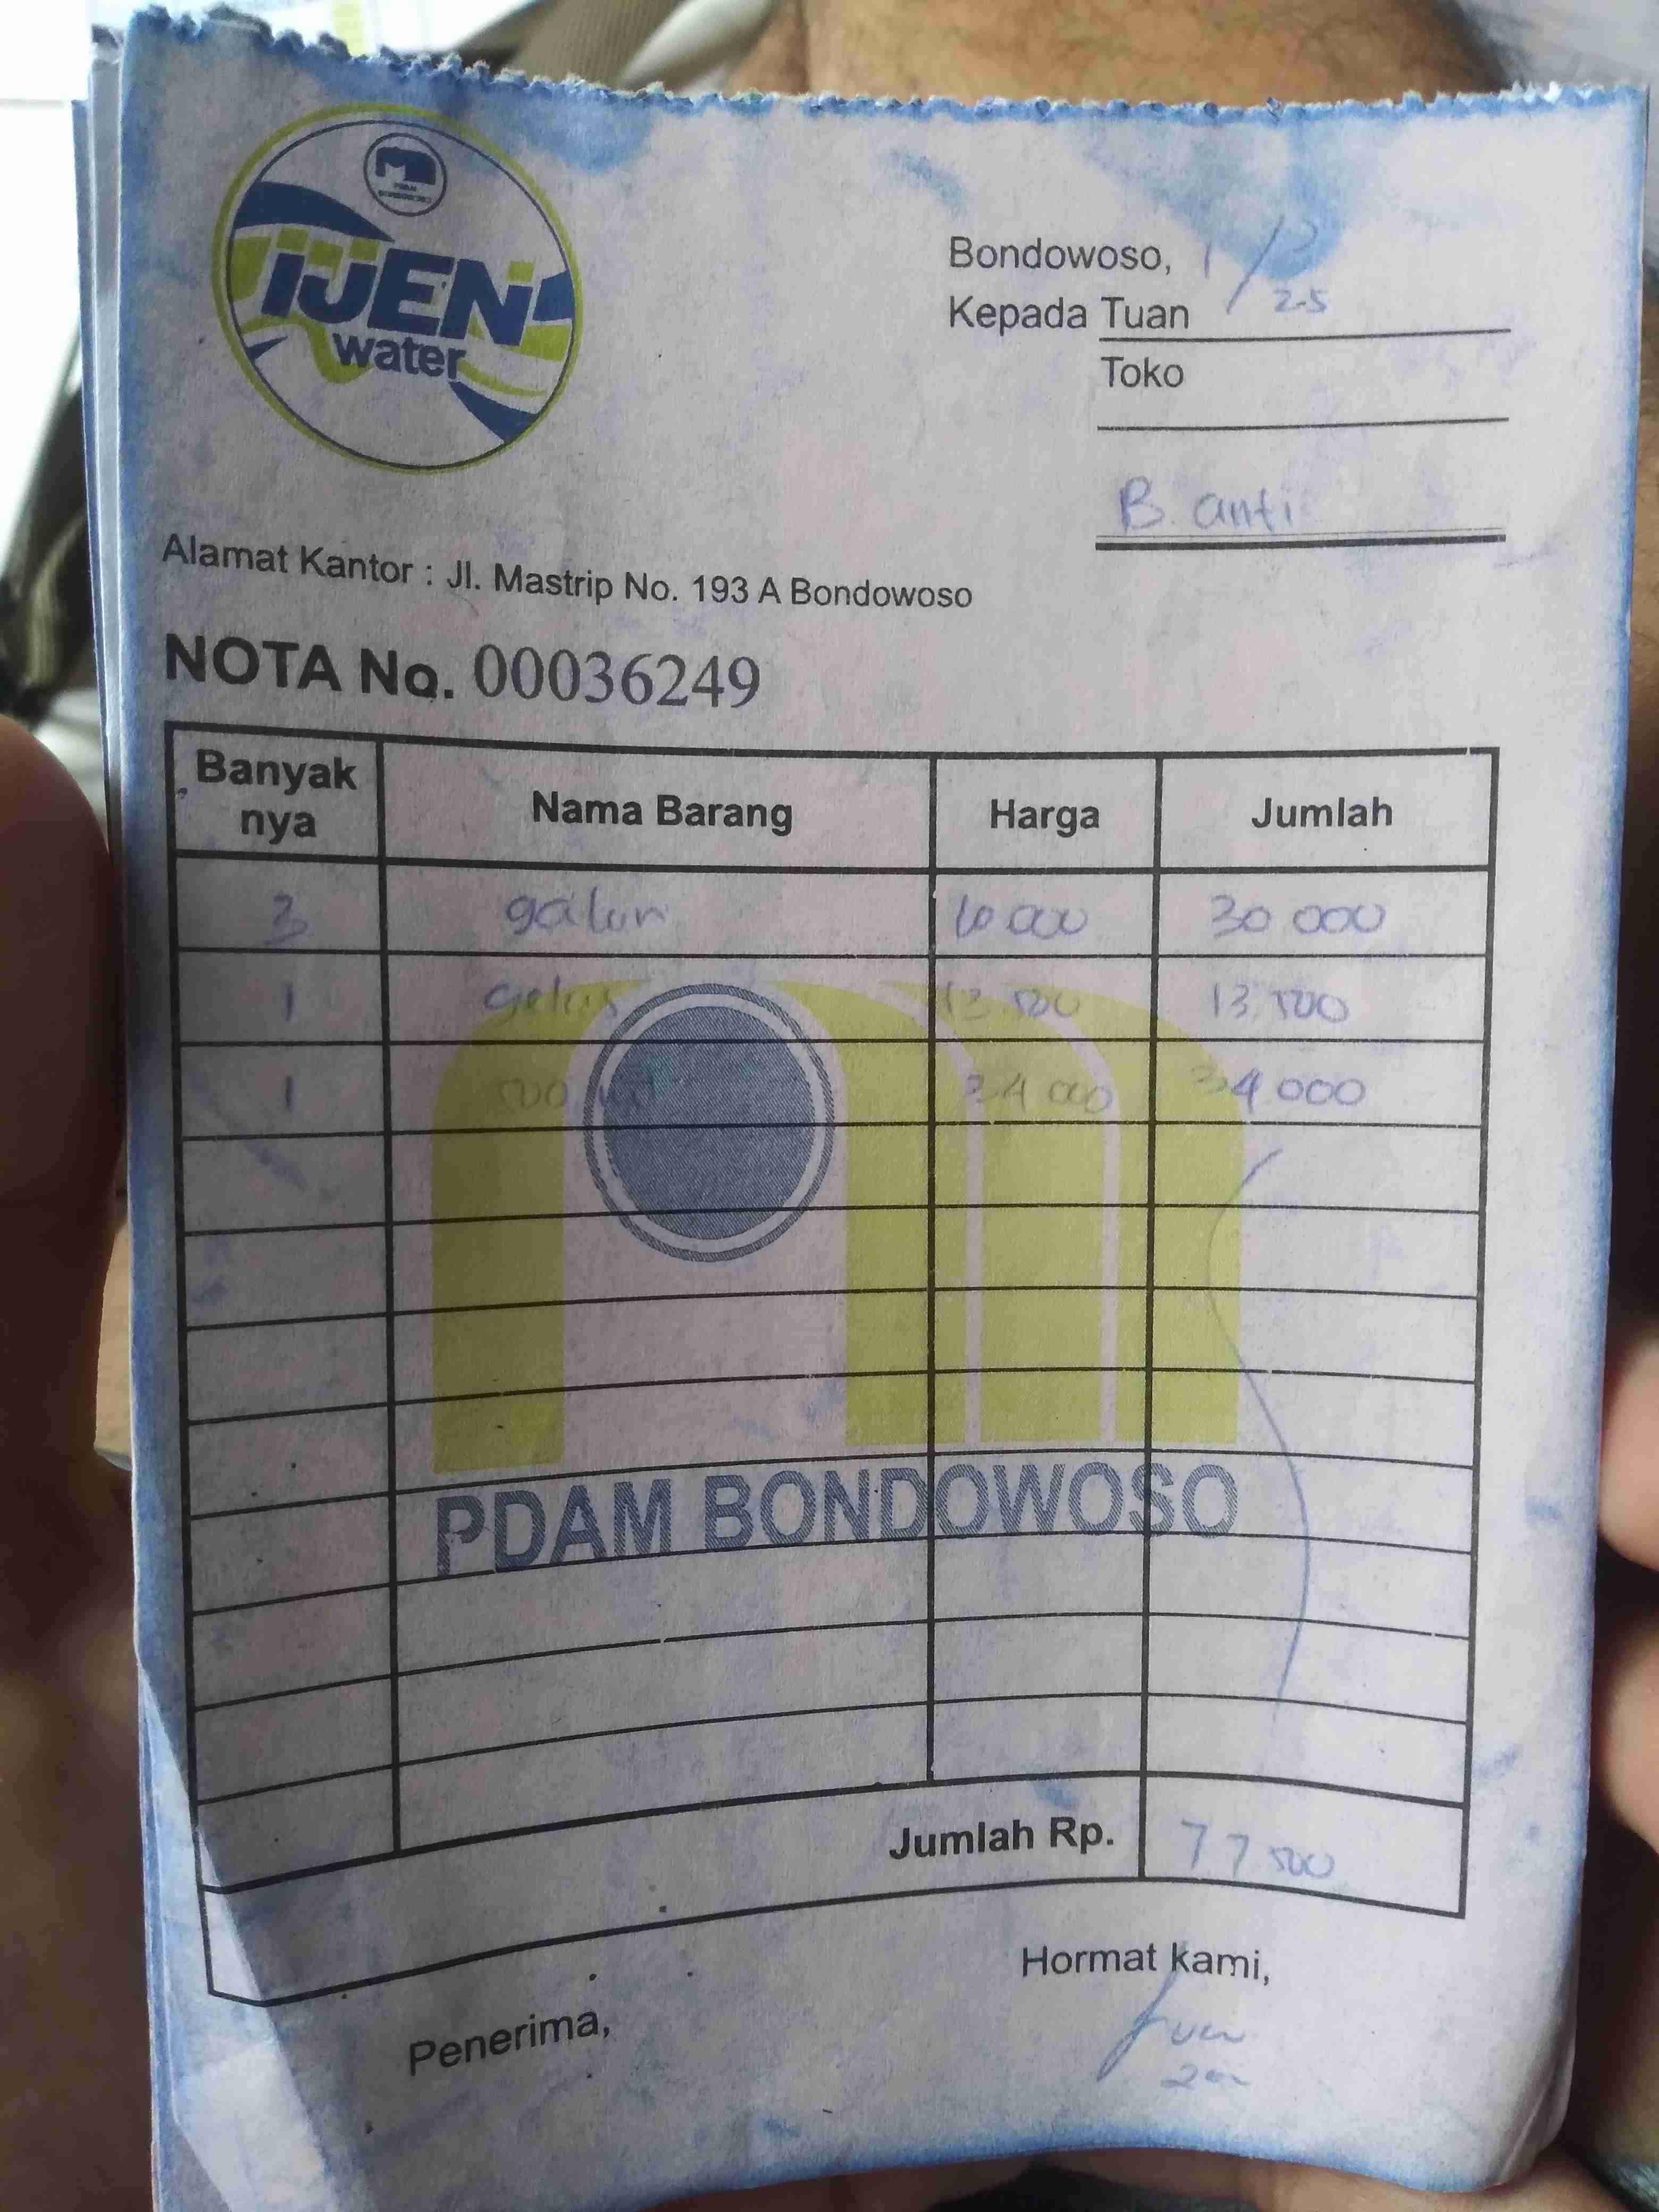 PDAM
BONDOWOSO
IJEN
water
Bondowoso, 1/
Kepada Tuan 25
Toko
B. anti
Alamat Kantor : Jl. Mastrip No. 193 A Bondowoso
NOTA No. 00036249
Banyak nya Nama Barang Harga Jumlah
3 galon 10 000 30 000
1 gelas 13.500 13.500
1 500 ml 34 000 34 000
PDAM BONDOWOSO
Jumlah Rp. 77 500
Hormat kami,
Penerima,